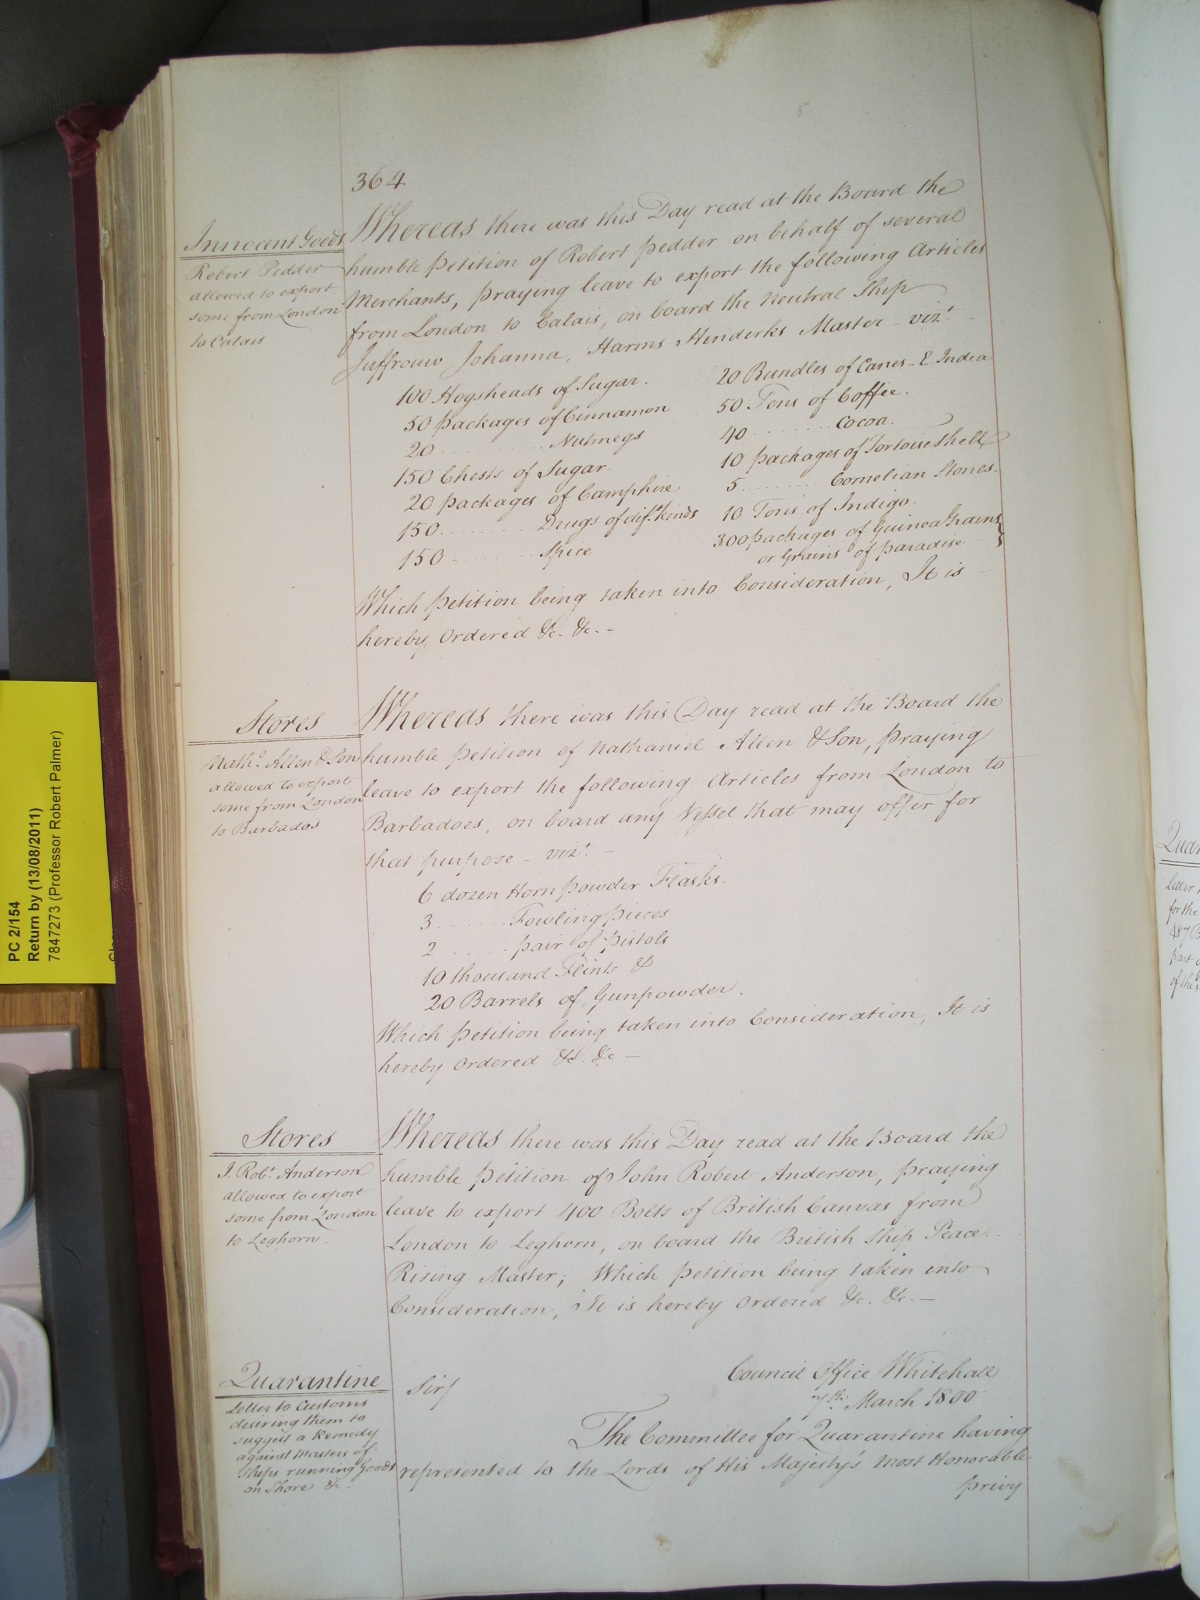 364
Innocent Goods
Robert Pedder
allowed to export
some from London
to Calais
Whereas there was this Day read at the Board the
humble Petition of Robert Pedder on behalf of several
Merchants, praying leave to export the following Articles
from London to Calais, on board the Neutral Ship
Juffrouw Johanna, Harms Henderks Master - vizt. -
100 Hogsheads of Sugar.
50 packages of Cinnamon
20 ........ Nutmegs
150 Chests of Sugar.
20 packages of Camphire
150 ........ Drugs of difft. kinds
150 ........ Spice
20 Bundles of Canes - E India
50 Tons of Coffee.
40 ........ Cocoa.
10 packages of Tortoise Shell
5 ........ Cornelian Stones.
10 Tons of Indigo
300 packages of Guinea Grains
or Grains of paradise
Which Petition being taken into Consideration, It is
hereby Ordered &c. &c. -
Stores
Nathl. Allen & Son
allowed to export
some from London
to Barbados
Whereas there was this Day read at the Board the
humble Petition of Nathaniel Allen & Son, praying
leave to export the following Articles from London to
Barbadoes, on board any Vessel that may offer for
that purpose - vizt. -
6 dozen Horn powder Flasks.
3 ...... Fowling pieces
2 ...... pair of pistols
10 thousand Flints &
20 Barrels of Gunpowder.
Which Petition being taken into Consideration, It is
hereby Ordered &c. &c -
Stores
J. Robt. Anderson
allowed to export
some from London
to Leghorn.
Whereas there was this Day read at the Board the
humble Petition of John Robert Anderson, praying
leave to export 400 Bolts of British Canvas from
London to Leghorn, on board the British Ship Peace
Rising Master; Which Petition being taken into
Consideration, It is hereby Ordered &c. &c. -
Quarantine
Letter to Customs
desiring them to
suggest a Remedy
against Masters of
Ships running Goods
on Shore &c.
Council Office Whitehall
7th. March 1800
Sir/
The Committee for Quarantine having
represented to the Lords of His Majesty's Most Honorable
privy
PC 2/154
Return by (13/08/2011)
7847273 (Professor Robert Palmer)
Letter
for the
487
Part
of the